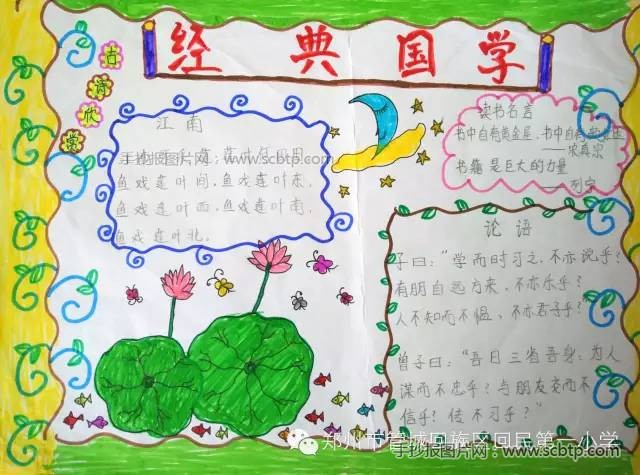 经典国学
古诗欣赏
江南
手抄报图片网 www.scbtp.com
鱼戏莲叶间，鱼戏莲叶东，
鱼戏莲叶西，鱼戏莲叶南，
鱼戏莲叶北。
读书名言
书中自有黄金屋，书中自有
——宋真宗
书籍是巨大的力量
——列宁
论语
子曰：“学而时习之，不亦说乎？
有朋自远方来，不亦乐乎？
人不知而不愠，不亦君子乎？
曾子曰：“吾日三省吾身：为人
谋而不忠乎？与朋友交而不
信乎？传不习乎？”
郑州市管城回族区回民第一小学
手抄报图片网：www.scbtp.com